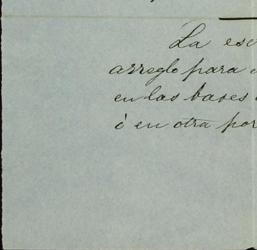 La esc
arreglo para
en las bases
ó en otra por